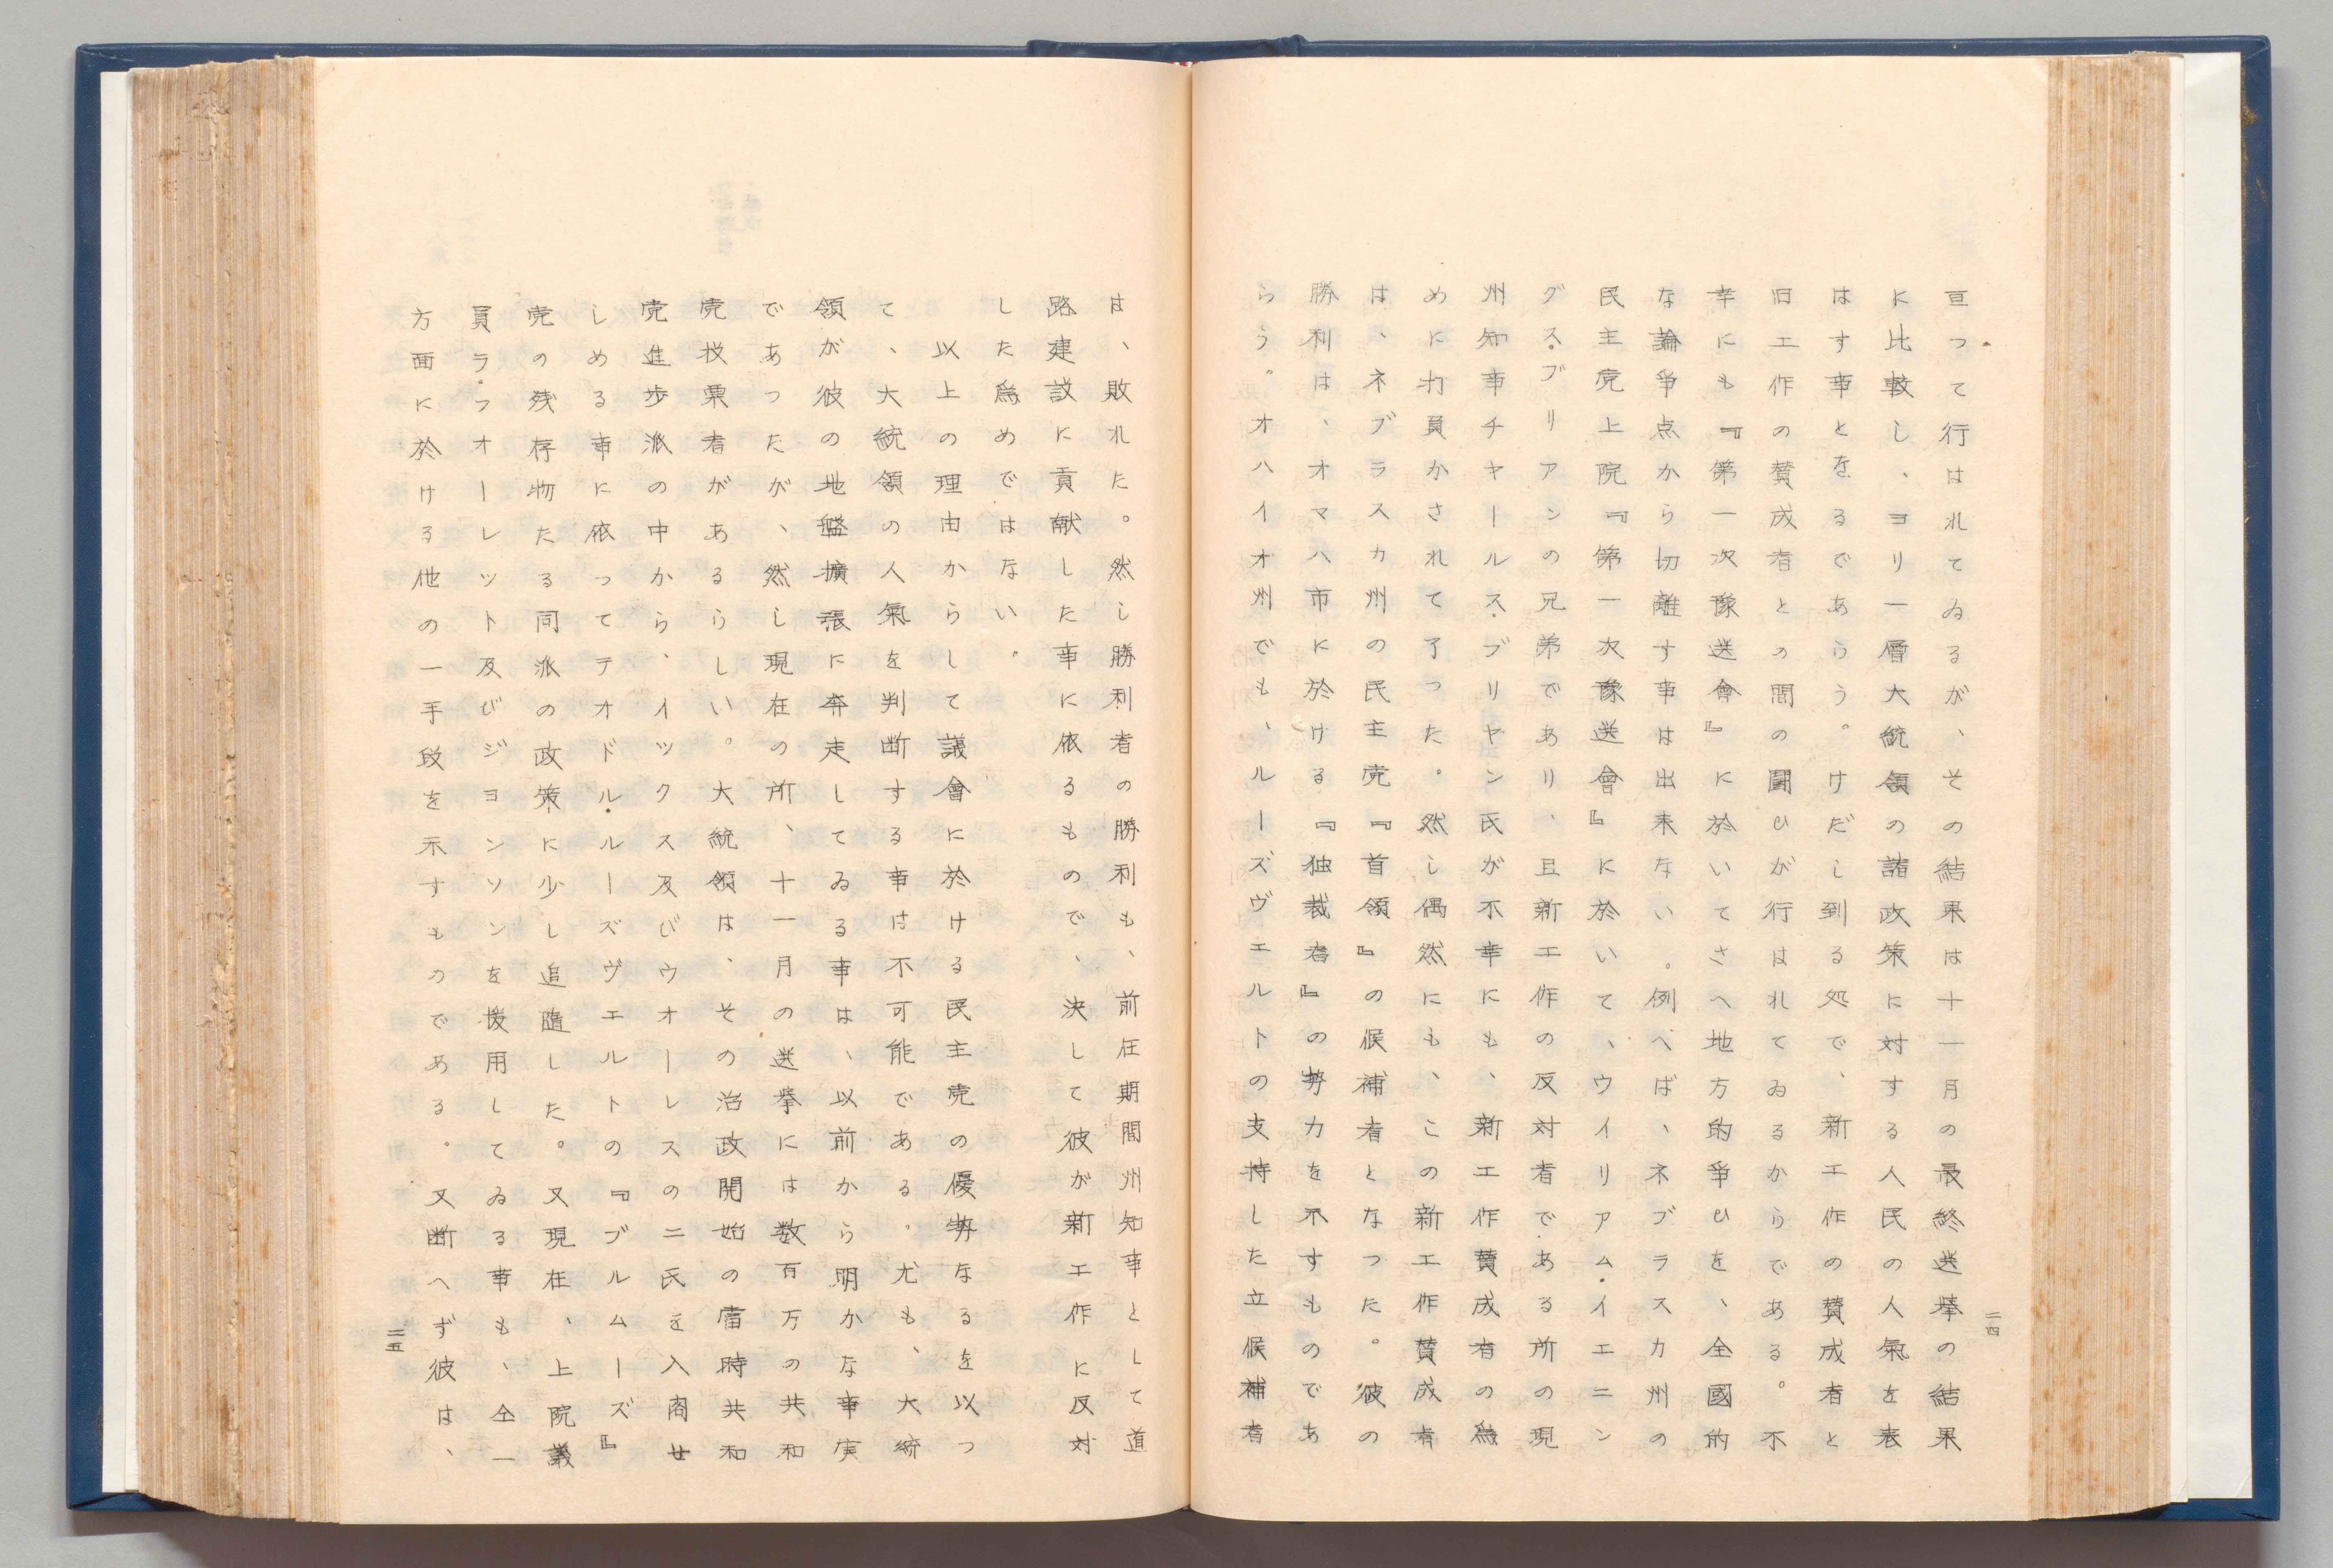 亘つて行はれてゐるが、その結果は十一月の最終選挙の結果
に比較し、ヨリ一層大統領の諸政策に対する人民の人氣を表
はす事とをるであらう。けだし到る処で、新工作の賛成者と
旧工作の賛成者との間の闘ひが行はれてゐるからである。不
幸にも『第一次豫選會』に於いてさへ地方的爭ひを、全國的
な論爭点から切離す事は出来ない。例へば、ネブラスカ州の
民主党上院『第一次豫選會』に於いて、ウイリアム・イエニン
グス・ブリアンの兄弟であり、且新工作の反対者である所の現
州知事チヤールス・ブリヤン氏が不幸にも、新工作賛成者の為
めに打負かされて了つた。然し偶然にも、この新工作賛成者
は、ネブラスカ州の民主党『首領』の候補者となつた。彼の
勝利は、オマハ市に於ける『独裁者』の勢力を示すものであ
らう。オハイオ州でも、ルーズヴエルトの支持した立候補者
二四
は、敗れた。然し勝利者の勝利も、前任期間州知事として道
路建設に貢献した事に依るもので、決して彼が新工作に反対
した為めではない。
以上の理由からして議會に於ける民主党の優勢なるを以つ
て、大統領の人氣を判断する事は不可能である。尤も、大統
領が彼の地盤擴張に奔走してゐる事は、以前から明かな事実
であつたが、然し現在の所、十一月の選挙には数百万の共和
党投票者があるらしい。大統領は、その治政開始の當時共和
党進歩派の中から、イツクス及びウオーレスの二氏を入閣せ
しめる事に依つてテオドル・ルーズヴエルトの『ブルムーズ』
党の残存物たる同派の政策に少し追随した。又現在、上院議
員ラ・フオーレツト及びジヨンソンを援用してゐる事も、仝一
方面に於ける他の一手段を示すものである。又断へず彼は、
二五